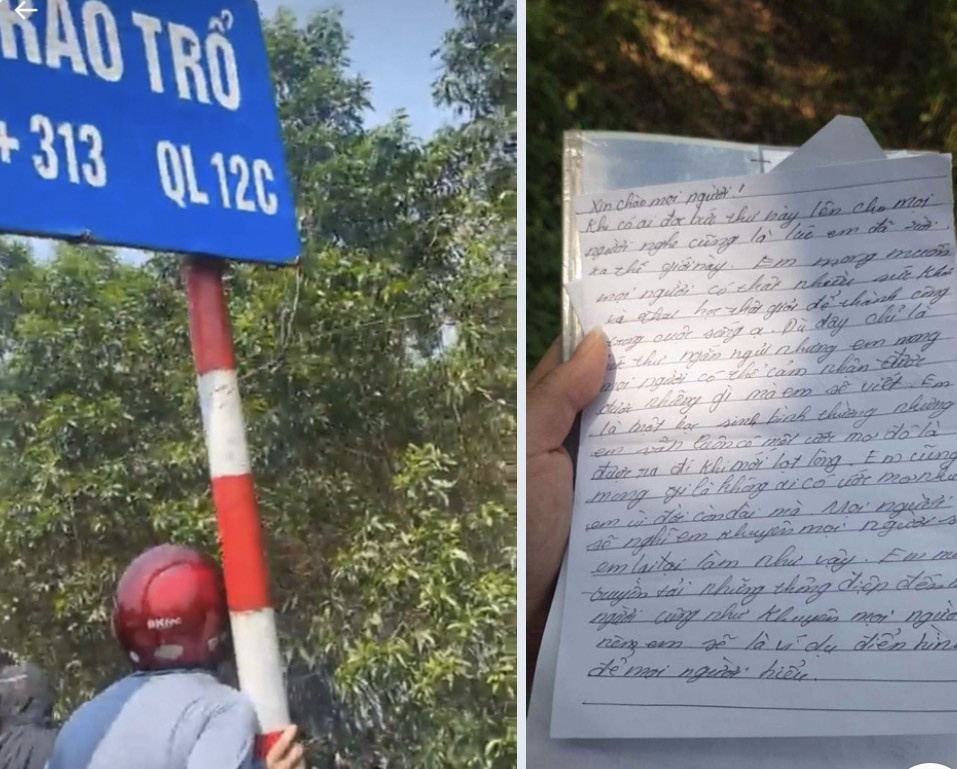 RÀO TRỔ
+ 313 QL 12C
BKtec
Xin chào mọi người!
Khi có ai đọc bức thư này lên cho mọi
người nghe cũng là lúc em đã rời
xa thế giới này. Em mong muốn
mọi người có thật nhiều sức khỏe
và phải học thật giỏi để thành công
trong cuộc sống ạ. Dù đây chỉ là
thư ngắn ngủi nhưng em mong
mọi người có thể cảm nhận được
được những gì mà em sẽ viết. Em
là một học sinh bình thường nhưng
em vẫn luôn có một ước mơ đó là
được ra đi khi mới lọt lòng. Em cũng
mong gì là không ai có ước mơ như
em vì đời còn dài mà. Mọi người
sẽ nghĩ em khuyên mọi người
em lại làm như vậy. Em
truyền tải những thông điệp đến
người cũng như khuyên mọi người
nên em sẽ là ví dụ điển hình
để mọi người hiểu.